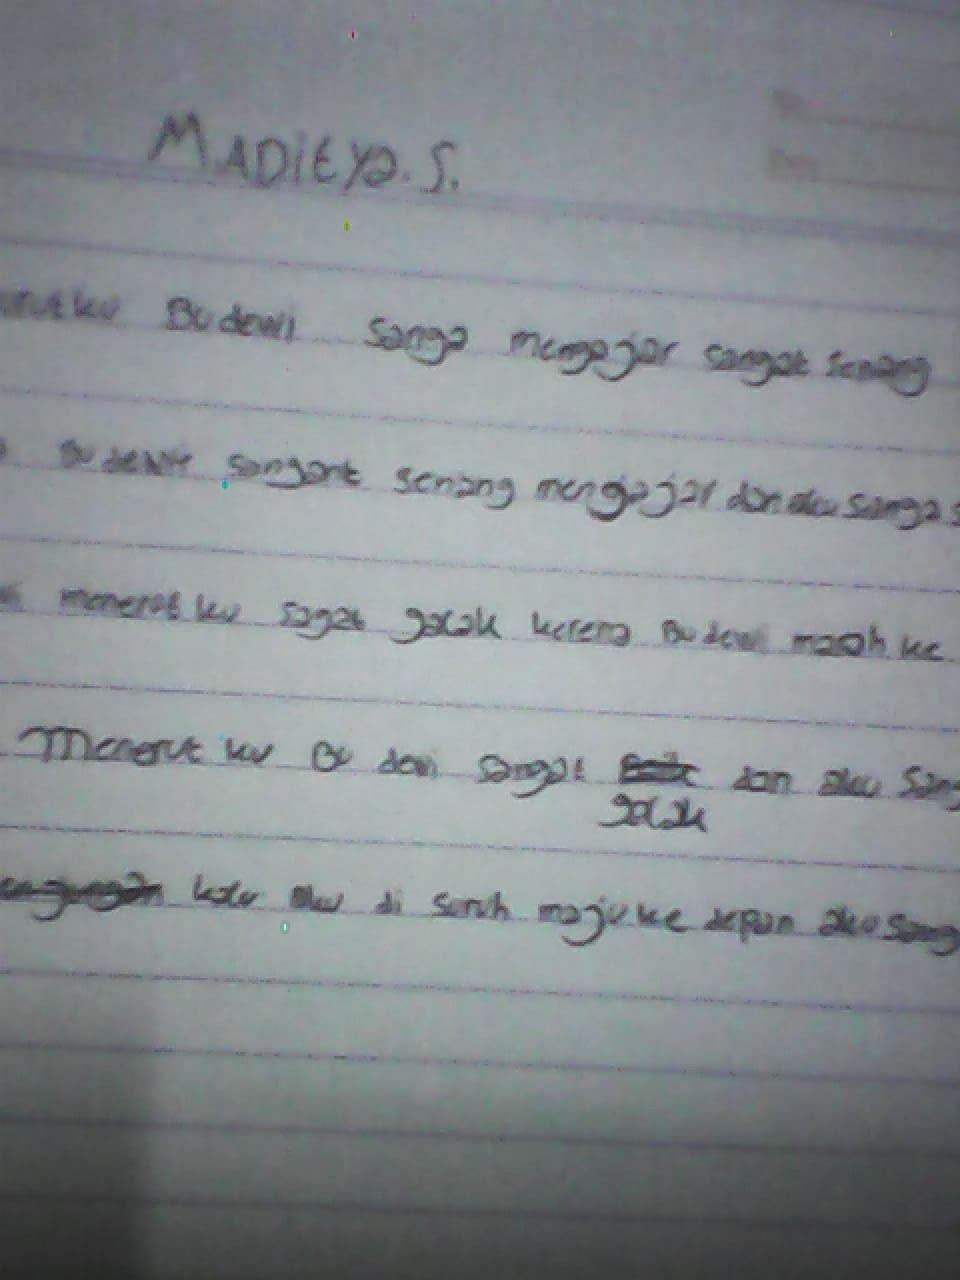 MADitya.S.
Bu dewi sanga mengajar sangat senang
Bu dewi sangant senang mengajar dan aku sanga
menerut ku sagat galak kerena Bu dewi marah ke
Menerut ku Bu dewi sangat galak dan aku sang
kalu aku di suruh maju ke depan aku sang